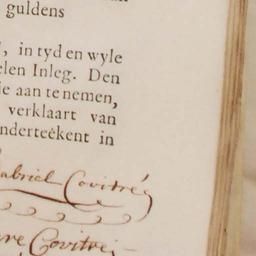 guldens
, in tyd en wyle
elen Inleg. Den
ie aan te nemen,
verklaart van
nderteekent in
Gabriel Covitréz